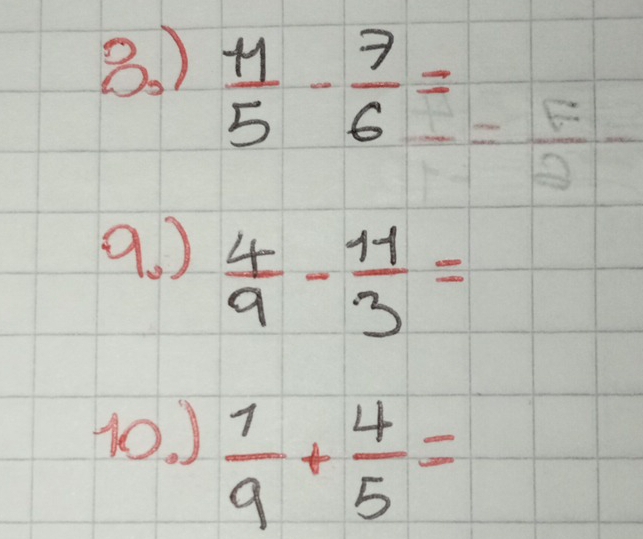 8.) 11/5 - 7/6 =
9.) 4/9 - 11/3 =
10.) 1/9 + 4/5 =